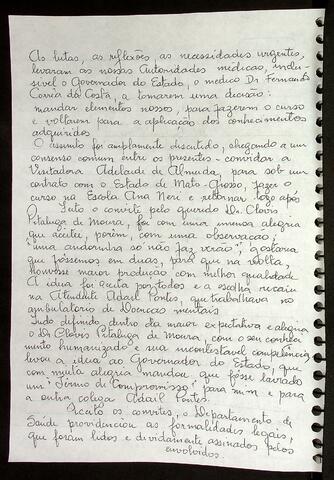 As lutas, as reflexões, as necessidades urgentes,
levaram as nossas Autoridades médicas, inclu-
sivel o Governador do Estado, o medico Dr Fernando
Correia da Costa, a tomarem uma decisão:
mandar elementos nossos, para fazerem o curso
e voltarem para a aplicação dos conhecimentos
adquiridos
O assunto foi amplamente discutido, chegando a um
consenso comum entre os presentes - convidar a
Visitadora Adelaide de Almeida, para sob um
contrato com o Estado de Mato-Grosso, fazer o
curso na Escola Ana Neri e retornar logo após
Feito o convite pelo querido Dr Clovis
Pitaluga de Moura, foi com uma imensa alegria
que aceitei, porém, com uma observação,
"uma andorinha só não faz verão", gostaria
que fôssemos em duas, para que na volta,
houvesse maior produção com melhor qualidade
A idéia foi aceita por todos e a escolha recaiu
na Atendente Adail Pontes, que trabalhava no
ambulatório de Doenças mentais
Tudo definido, dentro da maior expectativa e alegria
o Dr Clóvis Pitaluga de Moura, com o seu conheci-
mento humanizado e sua incontestavel competência
levou a idéia ao Governador do Estado, que
com muita alegria mandou que fosse lavrado
um "Termo de Compromisso", para mim e para
a outra colega Adail Pontes.
Aceito os convites, o Departamento de
Saúde providenciou as formalidades legais,
que foram lidos e devidamente assinados pelos
envolvidos.